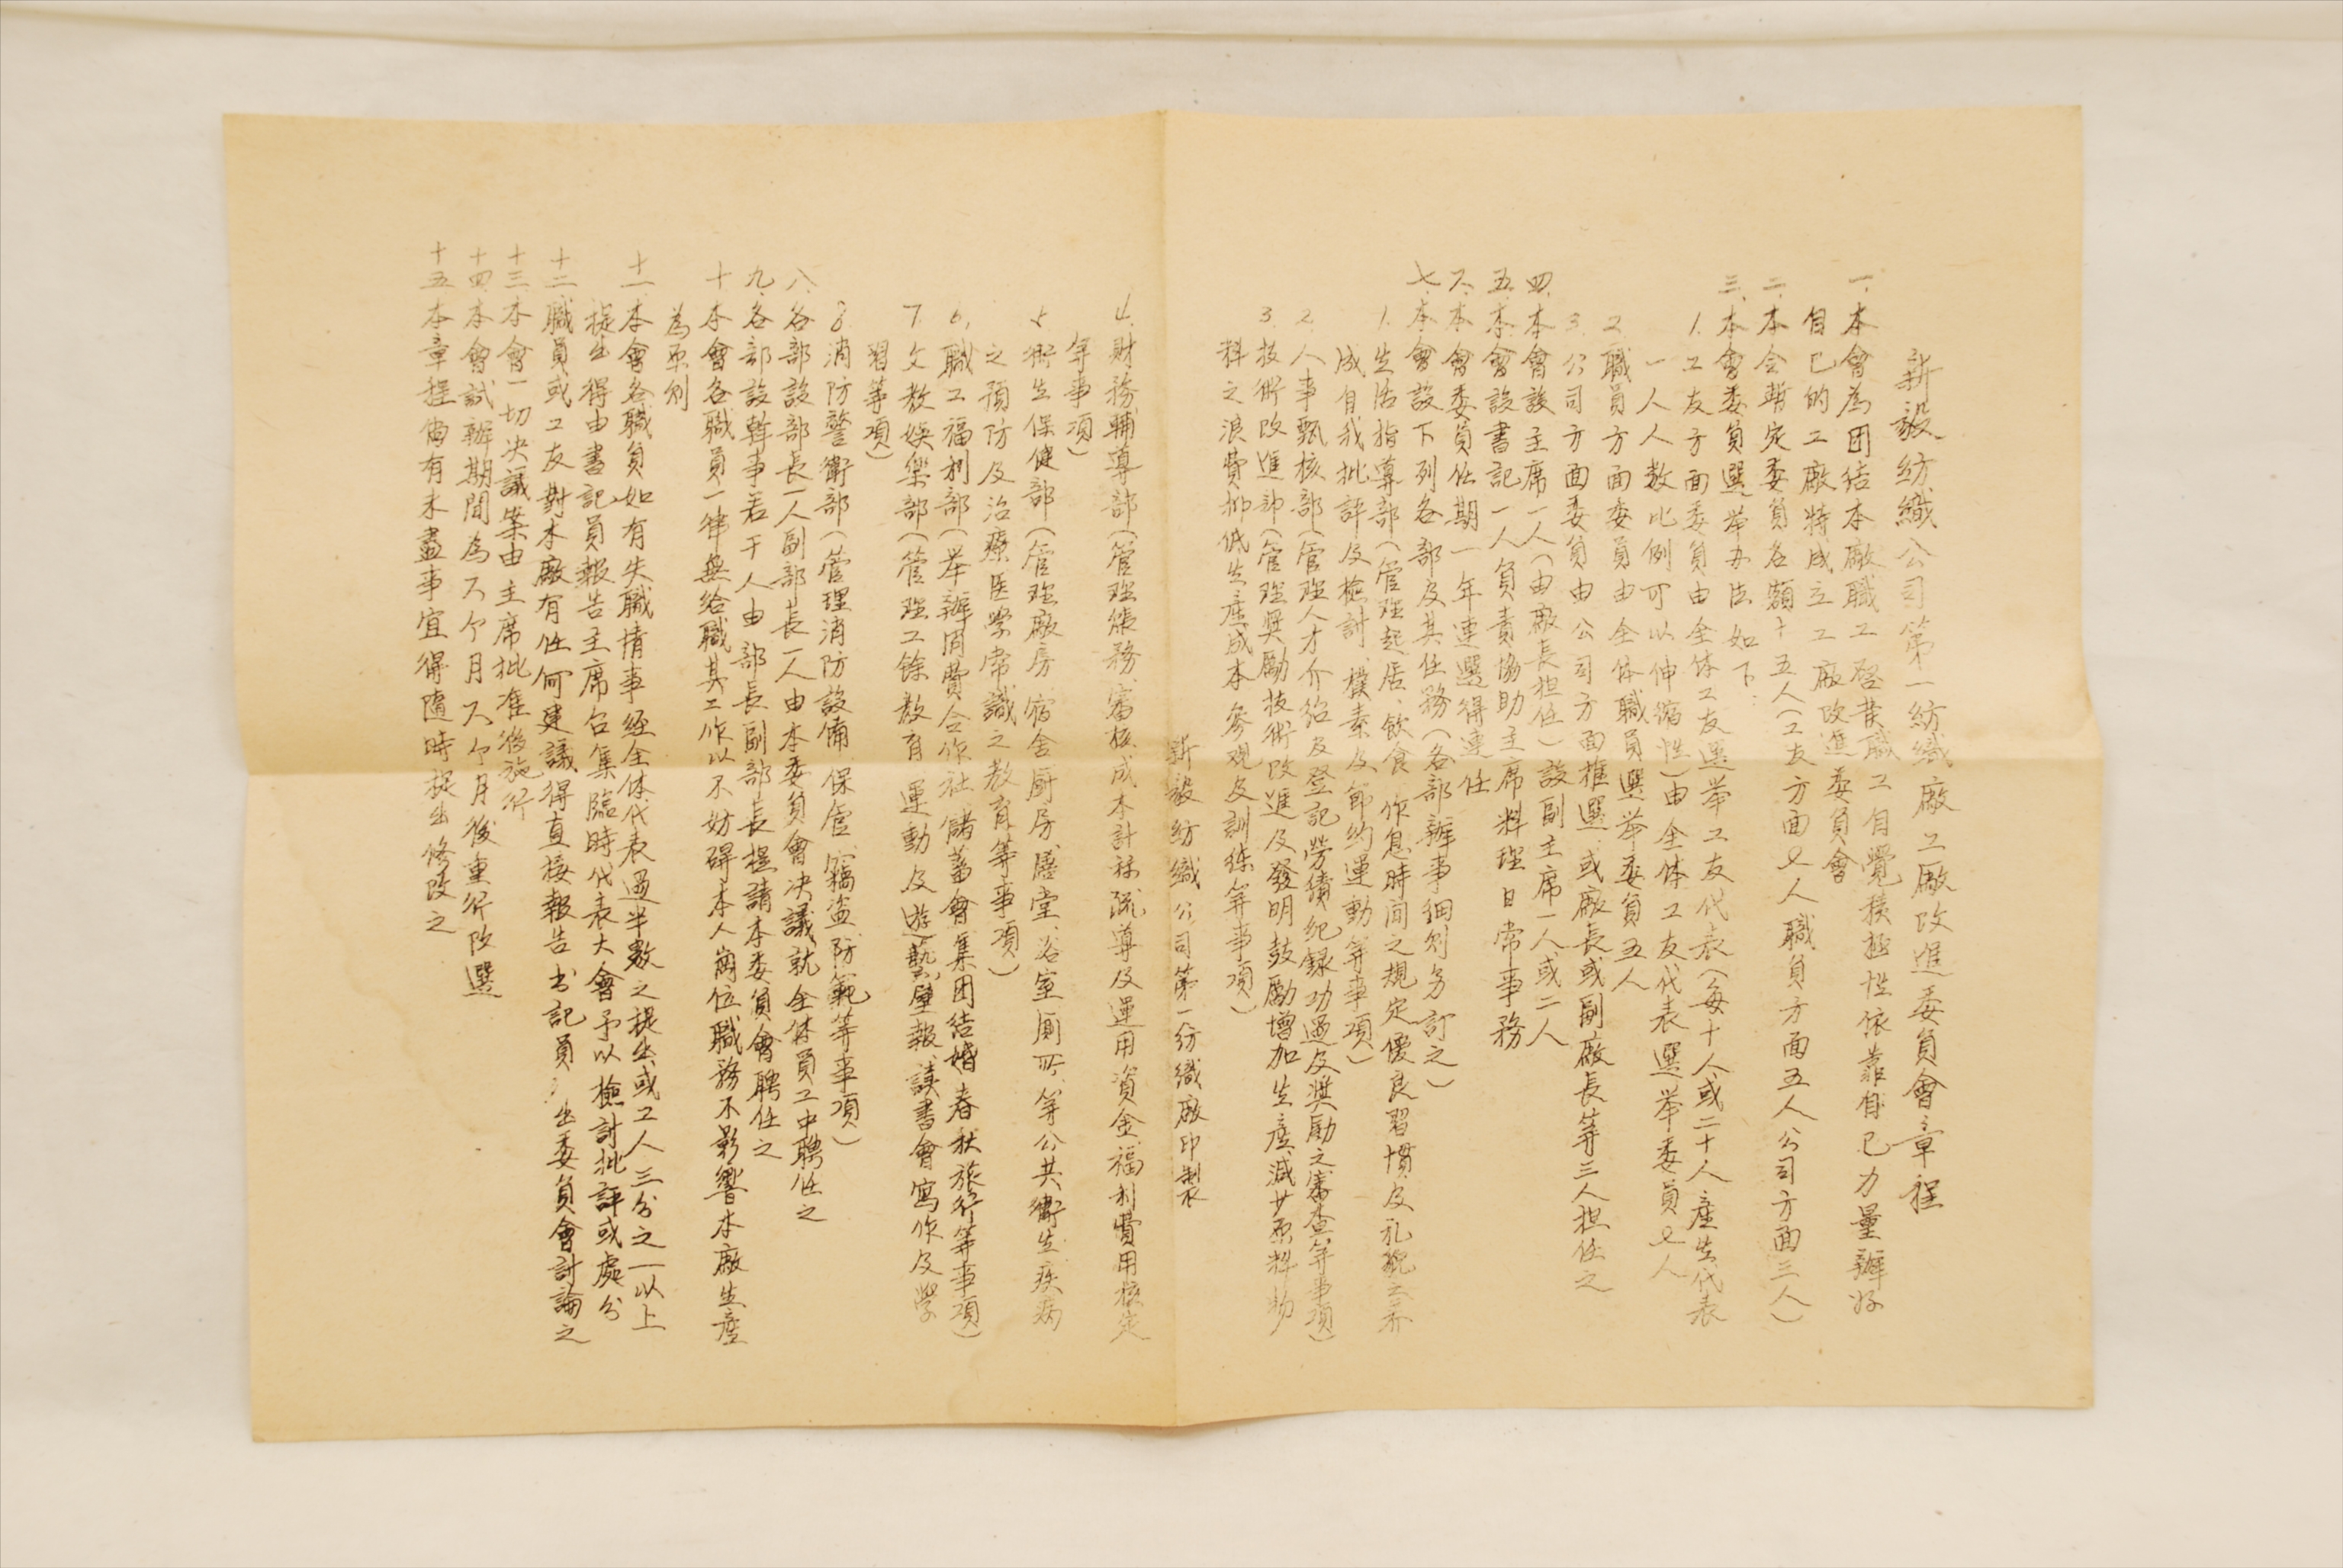 新設紡織公司第一紡織廠工廠改進委員會章程
一、本會為团结本廠職工啓發職工自覺積極性依靠自己力量辦好
自己的工廠特成立工廠改進委員會
二、本会暫定委員名額十五人（工友方面七人職員方面五人公司方面三人）
三、本會委員選举办法如下：
1.工友方面委員由全体工友選举工友代表（每十人或二十人産生代表
一人人数比例可以伸縮性）由全体工友代表選举委員七人
2.職員方面委員由全体職員選举委員五人
3.公司方面委員由公司方面推選或廠長或副廠長等三人担任之
四、本會設主席一人（由廠長担任）設副主席一人或二人
五、本會設書記一人負責協助主席料理日常事務
六、本會委員任期一年連選得連任
七、本會設下列各部及其任務（各部辦事细则另訂之）
1.生活指導部（管理起居、飲食、作息時间之規定優良習慣及礼貌之养
成自我批評及檢討、樸素及節约運動等事項）
2.人事甄核部（管理人才介绍及登記勞績纪録功過及奬勵之審查等事項）
3.技術改進部（管理奬勵技術改進及發明鼓勵增加生産減少原料物
料之浪費抑低生産成本參观及訓练等事項）
新設紡織公司第一紡織廠印製
4.財務輔導部（管理賬務、審核成本計祘疏導及運用資金福利費用核定
等事項）
5.衛生保健部（管理廠房、宿舍、厨房、膳堂、浴室、厠所、等公共衛生、疾病
之預防及治療医学常識之教育等事項）
6.職工福利部（举辦消費合作社、儲蓄會集团结婚春秋旅行等事項）
7.文教娛樂部（管理工餘教育運動及遊藝壁報、讀書會寫作及學
習等項）
8.消防警衛部（管理消防設備保管、竊盗、防範等事項）
八、各部設部長一人副部長一人由本委員會决議就全体員工中聘任之
九、各部設幹事若干人由部長副部長提請本委員會聘任之
十、本會各職員一律無給職其工作以不妨碍本人崗位職務不影響本廠生産
為原则
十一、本會各職員如有失職情事经全体代表過半數之提出或工人三分之一以上
提出得由書記員報告主席召集臨時代表大會予以檢討批評或處分
十二、職員或工友對本廠有任何建議得直接報告书記員出委員會討論之
十三、本會一切决議案由主席批准後施行
十四、本會試辦期間為六个月六个月後重行改選
十五、本章程倘有未盡事宜得隨時提出修改之